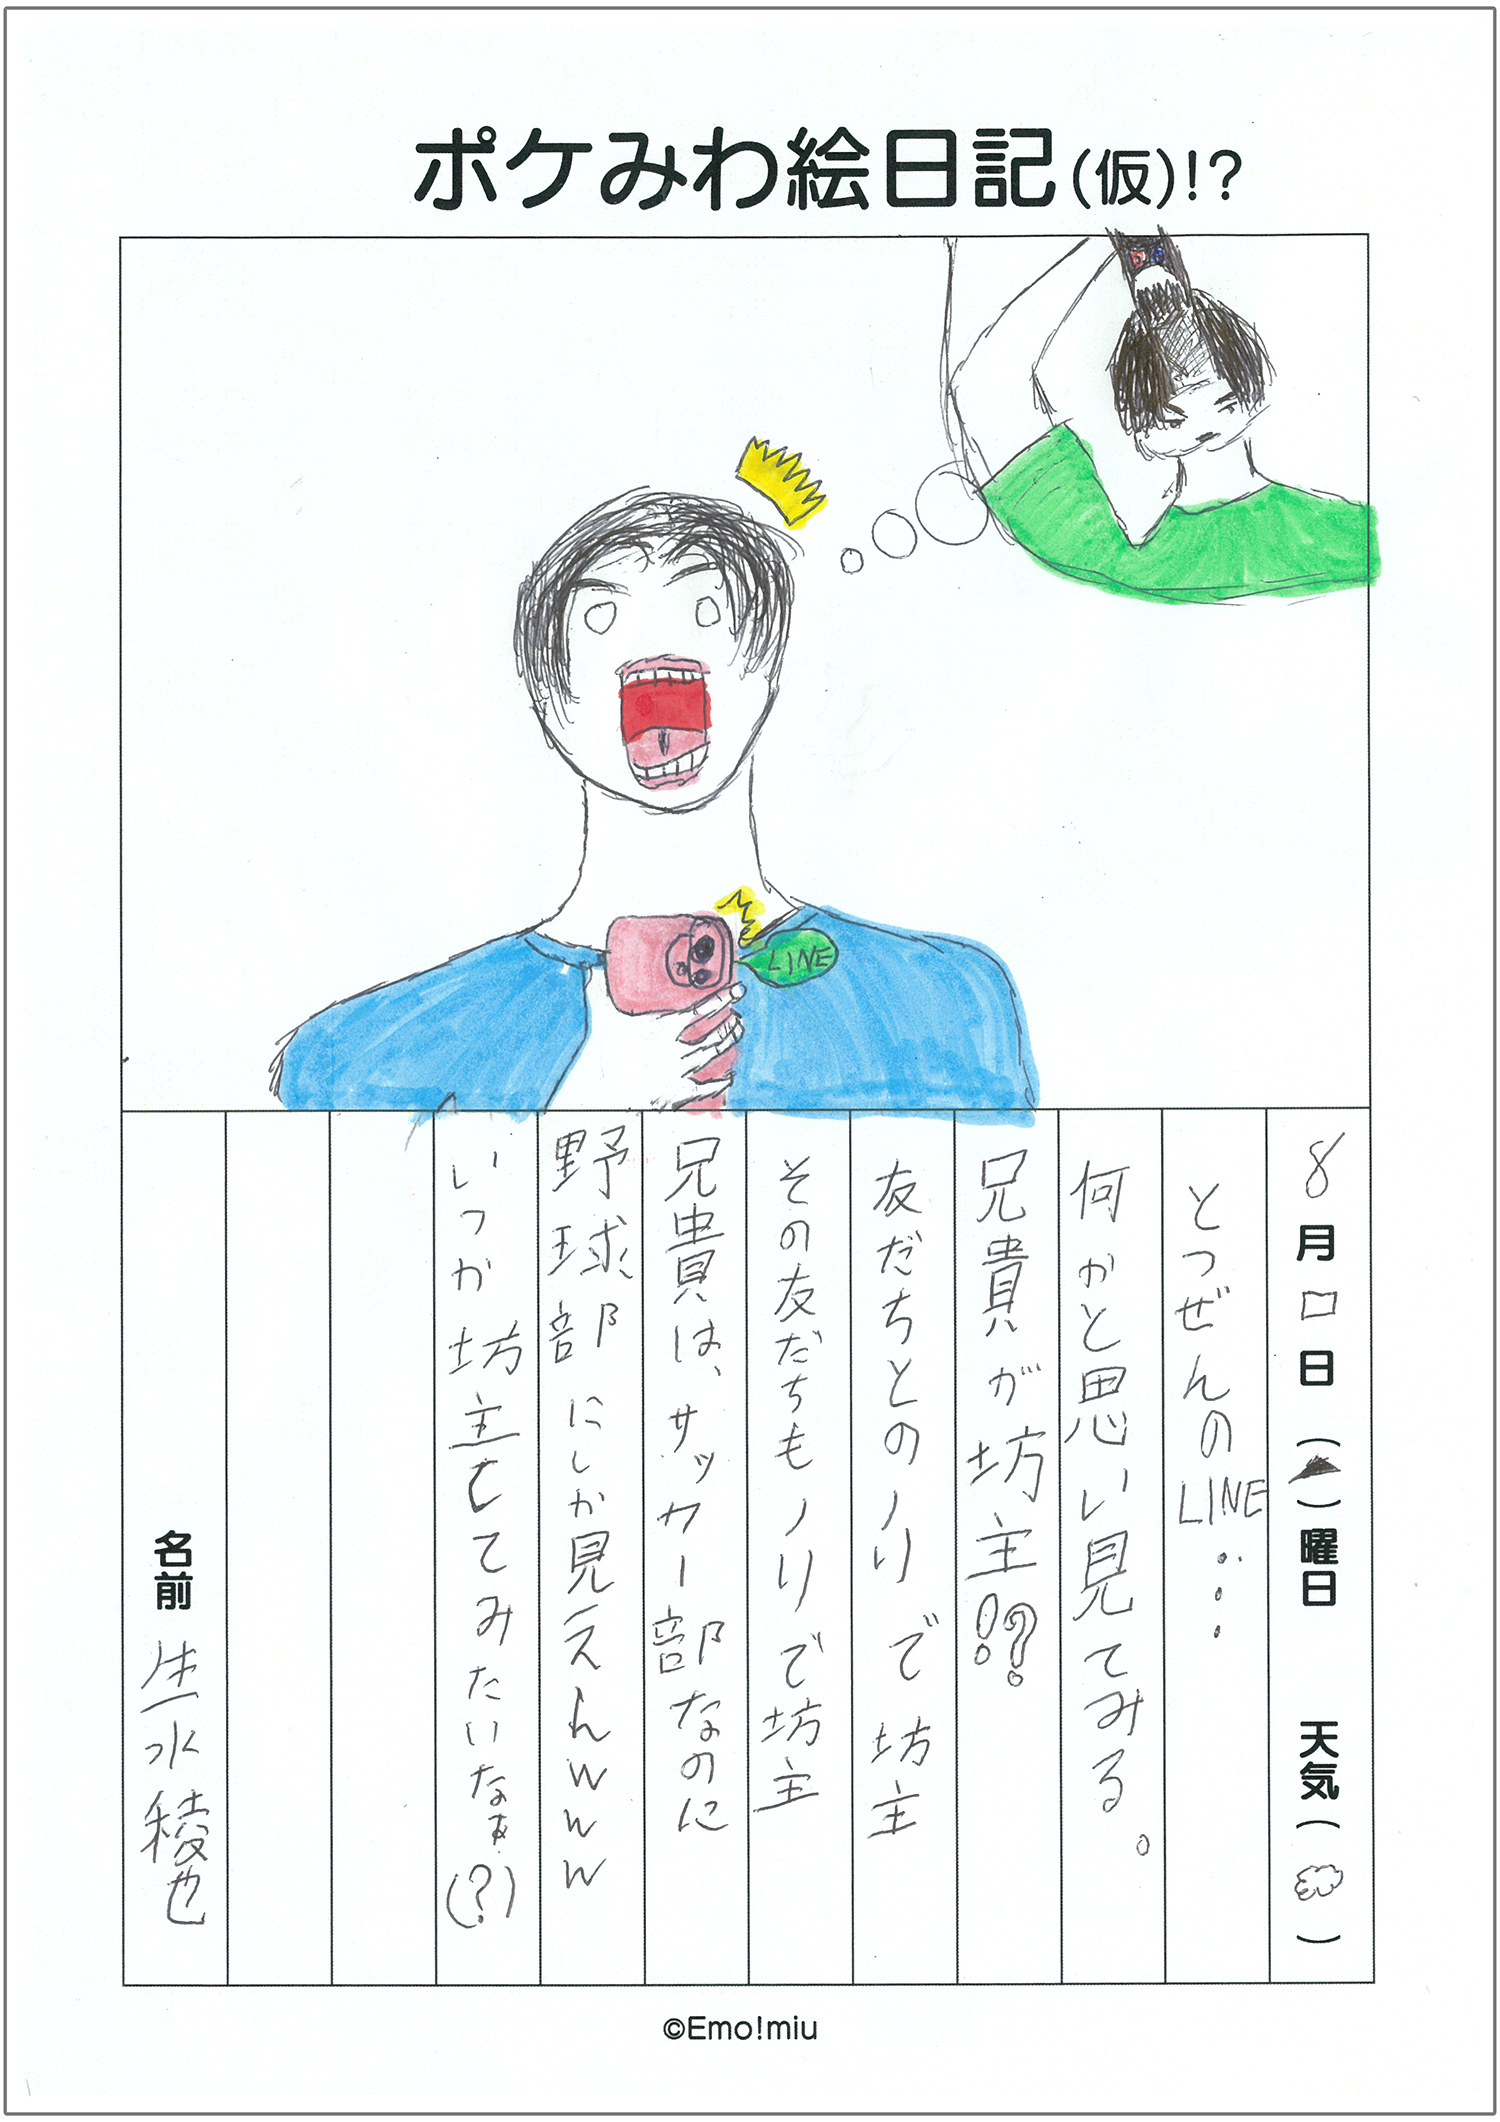 ポケみわ絵日記(仮)!?
LINE
8月口日(▲)曜日 天気( )
とつぜんのLINE…
何かと思い見てみる。
兄貴が坊主!?
友だちとのノリで坊主
その友だちもノリで坊主
兄貴は、サッカー部なのに
野球部にしか見えんwww
いつか坊主してみたいなぁ(?)
名前 生水稜也
©Emo!miu